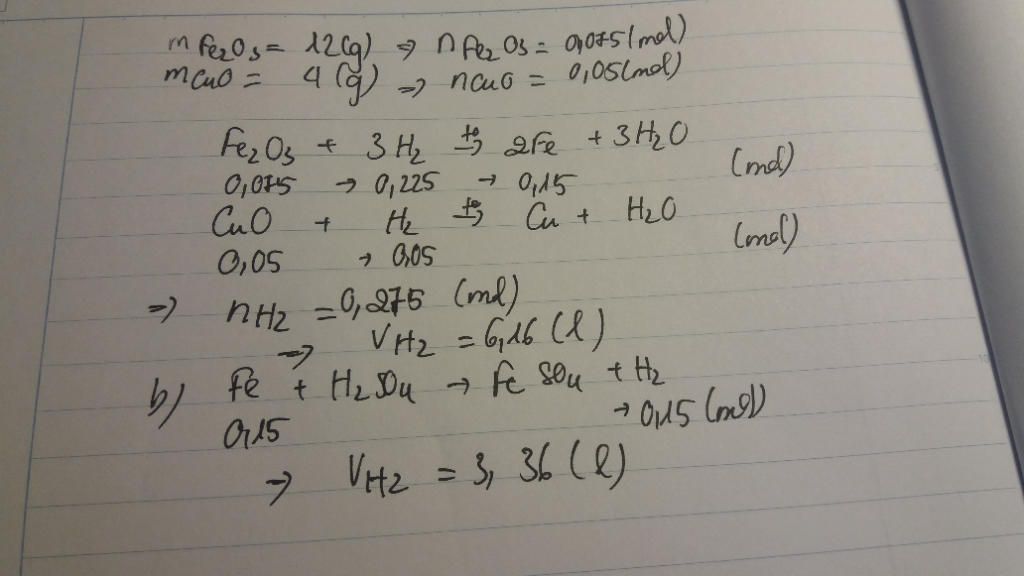 mFe2O3 = 12(g) => nFe2O3 = 0,075(mol)
mCuO = 4(g) => nCuO = 0,05(mol)
Fe2O3 + 3H2 →t° 2Fe + 3H2O
0,075 → 0,225 → 0,15 (mol)
CuO + H2 →t° Cu + H2O
0,05 → 0,05 (mol)
=> nH2 = 0,275 (mol)
=> VH2 = 6,16 (l)
b) Fe + H2SO4 → FeSO4 + H2
0,15 → 0,15 (mol)
=> VH2 = 3,36 (l)